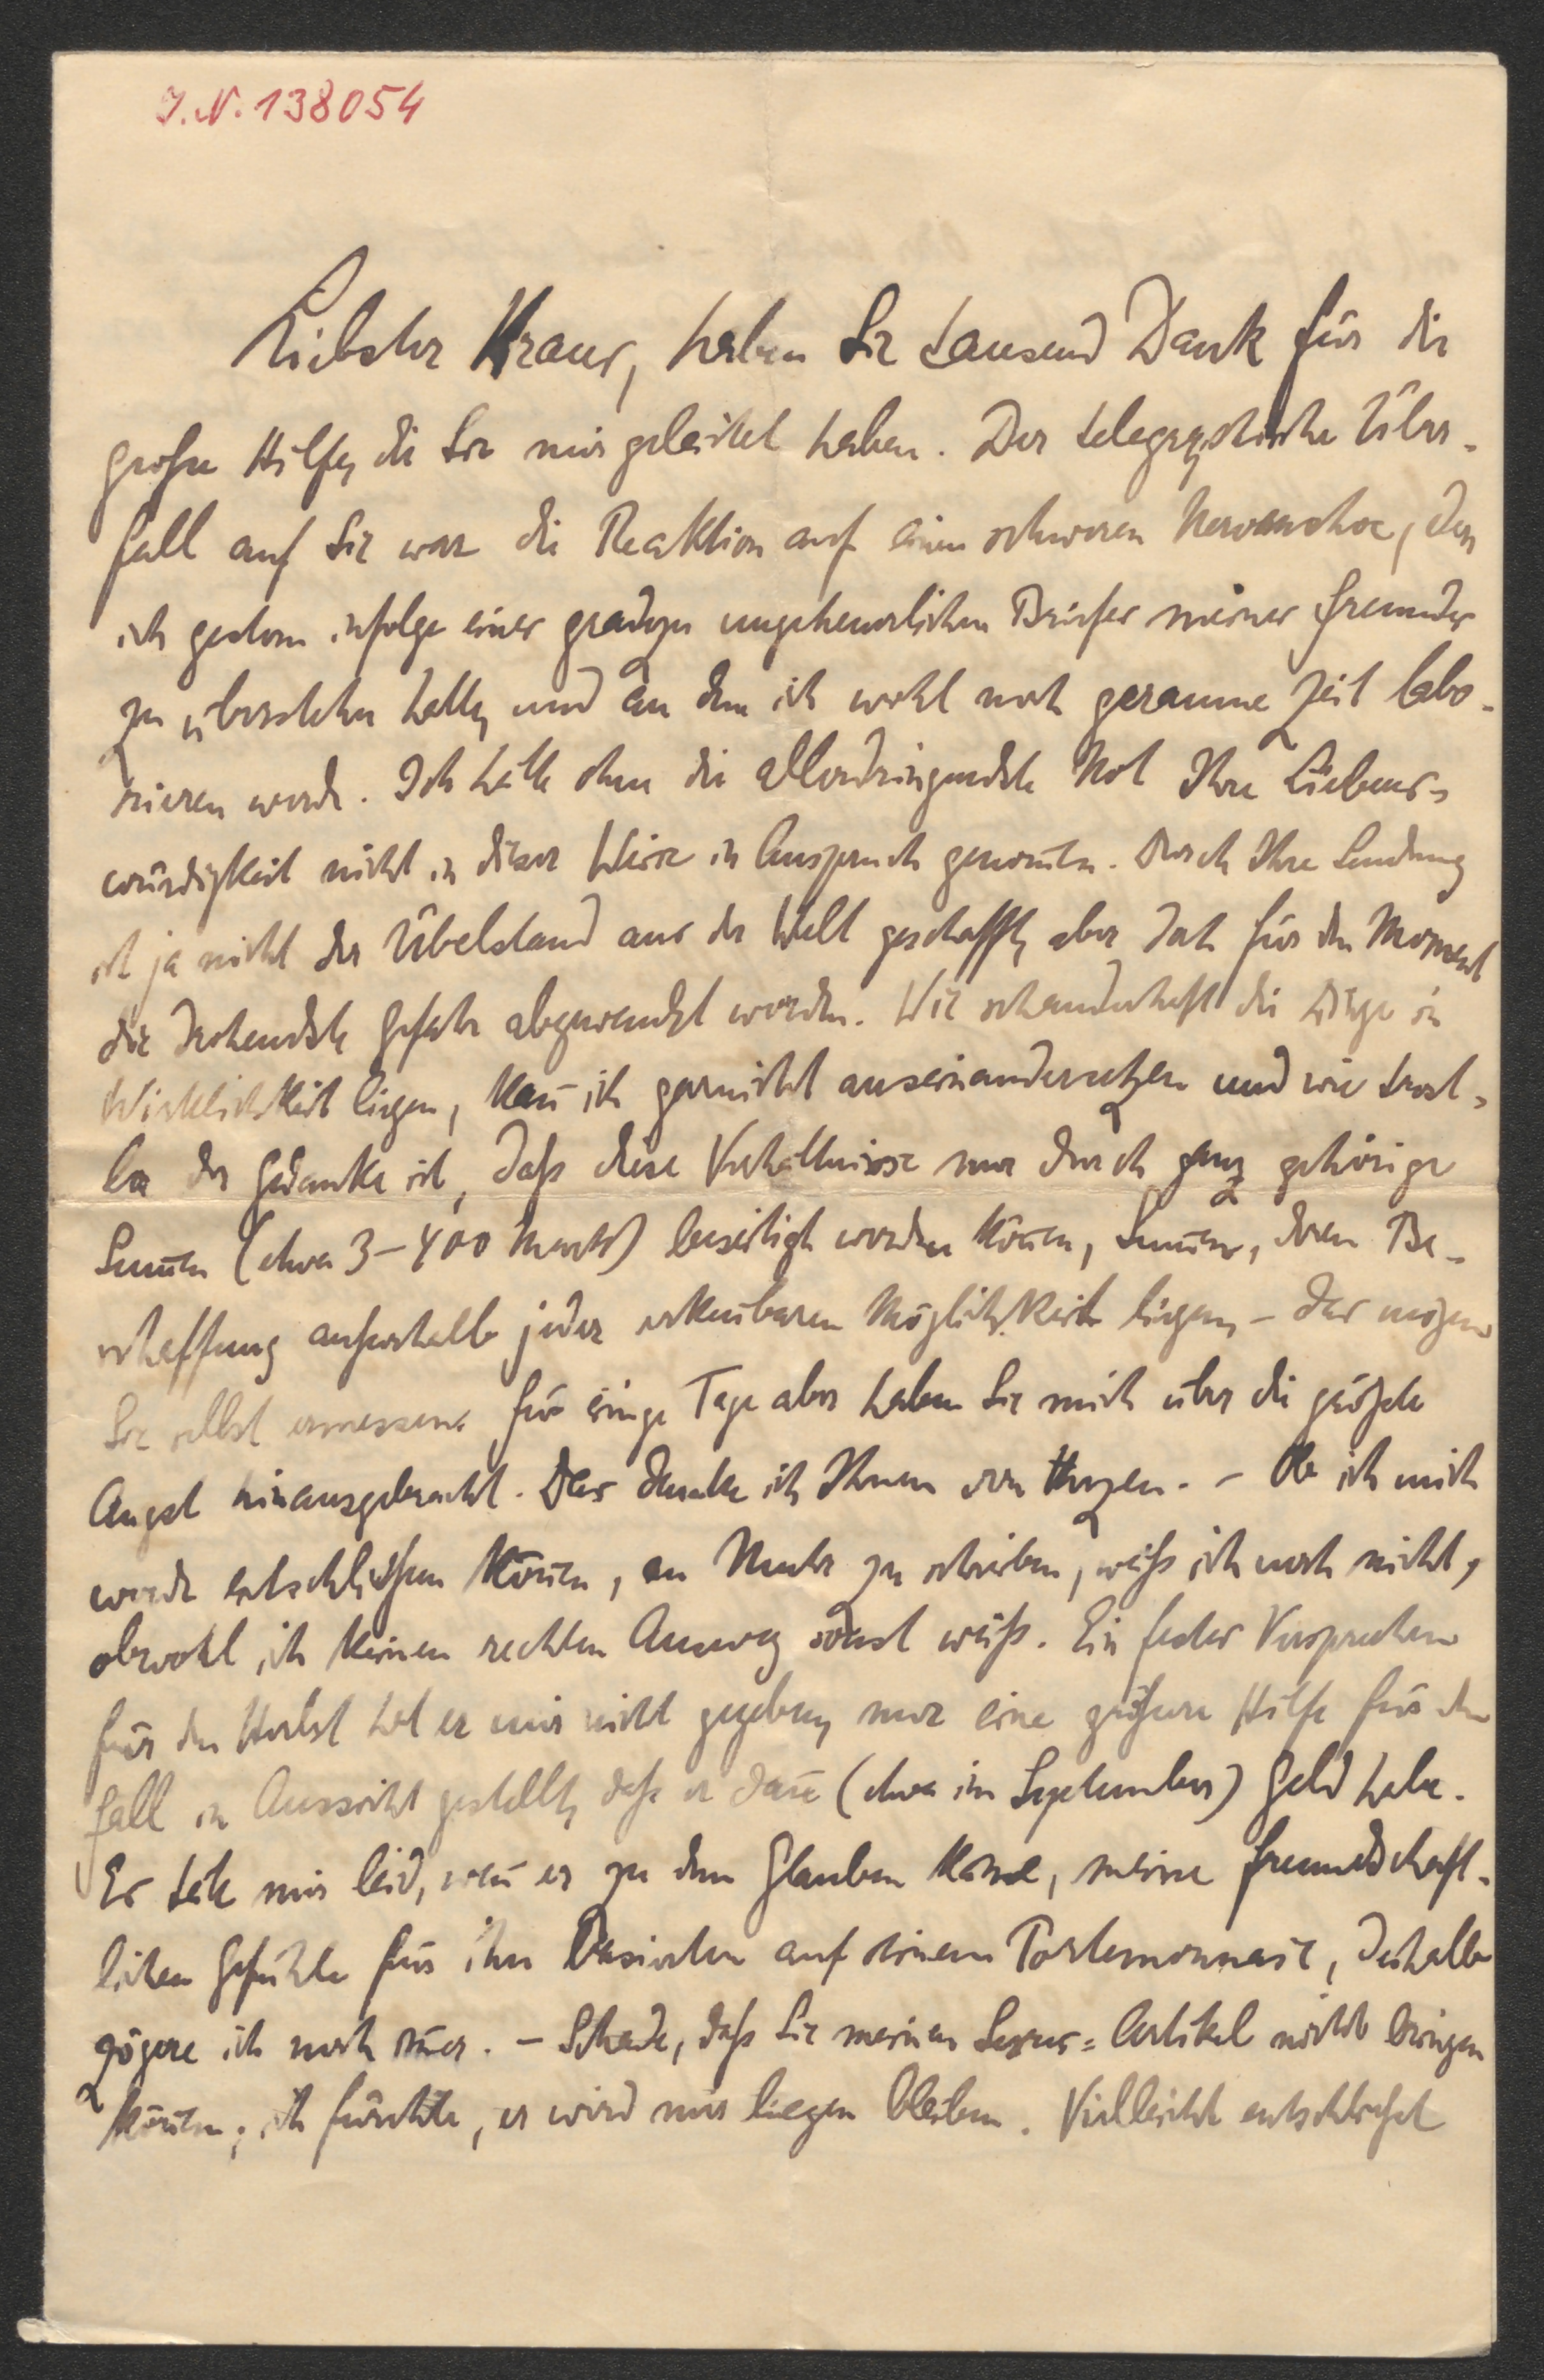 I.N. 138054
Liebster Kraus, haben Sie tausend Dank für die
große Hilfe, die Sie mir geleistet haben. Der telegraphische Über-
fall auf Sie war die Reaktion auf einen schweren Nervenchoc, den
ich gestern infolge eines gradezu ungeheuerlichen Briefes meines Freundes
zu überstehen hatte, und an dem ich wohl noch geraume Zeit labo-
rieren werde. Ich hätte ohne die allerdringendste Not Ihre Liebens-
würdigkeit nicht in dieser Weise in Anspruch genom̄en. Durch Ihre Sendung
ist ja nicht der Übelstand aus der Welt geschafft, aber doch für den Moment
die drohendste Gefahr abgewendet worden. Wie schauderhaft die Dinge in
Wirklichkeit liegen, kan̄ ich garnicht auseinandersetzen und wie trost-
los der Gedanke ist, daß diese Verhältnisse nur durch ganz gehörige
Sum̄en (etwa 3–400 Mark) beseitigt werden kön̄en, Sum̄en, deren Be-
schaffung außerhalb jeder erken̄baren Möglichkeit liegen, – das mögen
Sie selbst ermessen. Für einige Tage aber haben Sie mich über die größte
Angst hinausgebracht. Das danke ich Ihnen von Herzen. – Ob ich mich
werde entschließen kön̄en, an Muhr zu schreiben, weiß ich noch nicht,
obwohl ich keinen rechten Ausweg sonst weiß. Ein festes Versprechen
für den Herbst hat er mir nicht gegeben, nur eine größere Hilfe für den
Fall in Aussicht gestellt, daß er dan̄ (etwa im September) Geld habe.
Es täte mir leid, wen̄ er zu dem Glauben käme, meine freundschaft-
lichen Gefühle für ihn basierten auf seinem Portemonnaie, deshalb
zögere ich noch im̄er. – Schade, daß Sie meinen Lexus-Artikel nicht bringen
kön̄en; ich fürchte, er wird mir liegen bleiben. Vielleicht entschließt